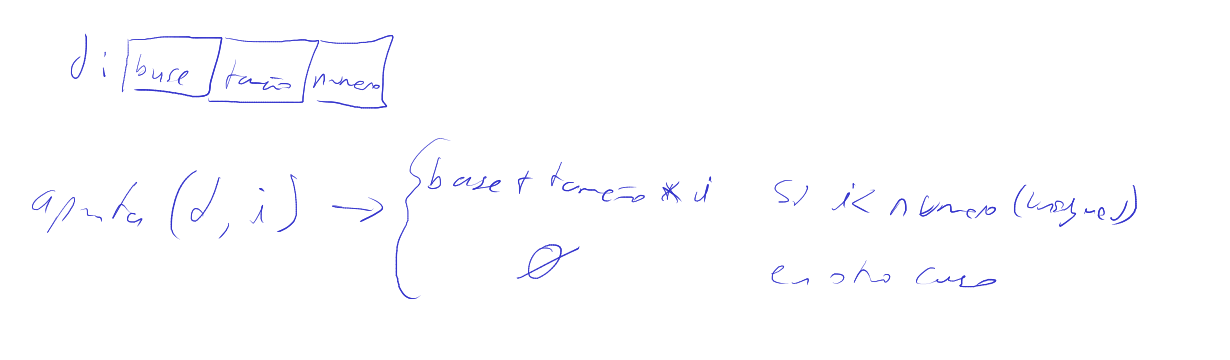 d: base tamaño numero
apunta (d, i) → { base + tamaño * i si i < numero (unsigned)
∅ en otro caso